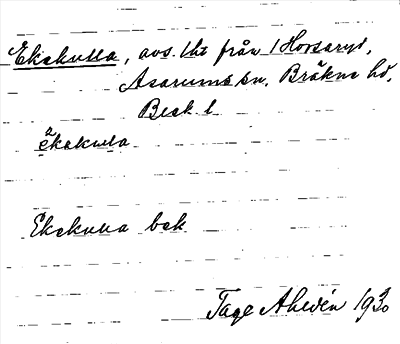 Ekekulla, avs. lht från 1 Horsaryd,
Asarums sn. Bräkne hd,
Blek. l
ekekulla
Ekekulla bek
Tage Ahldén 1930